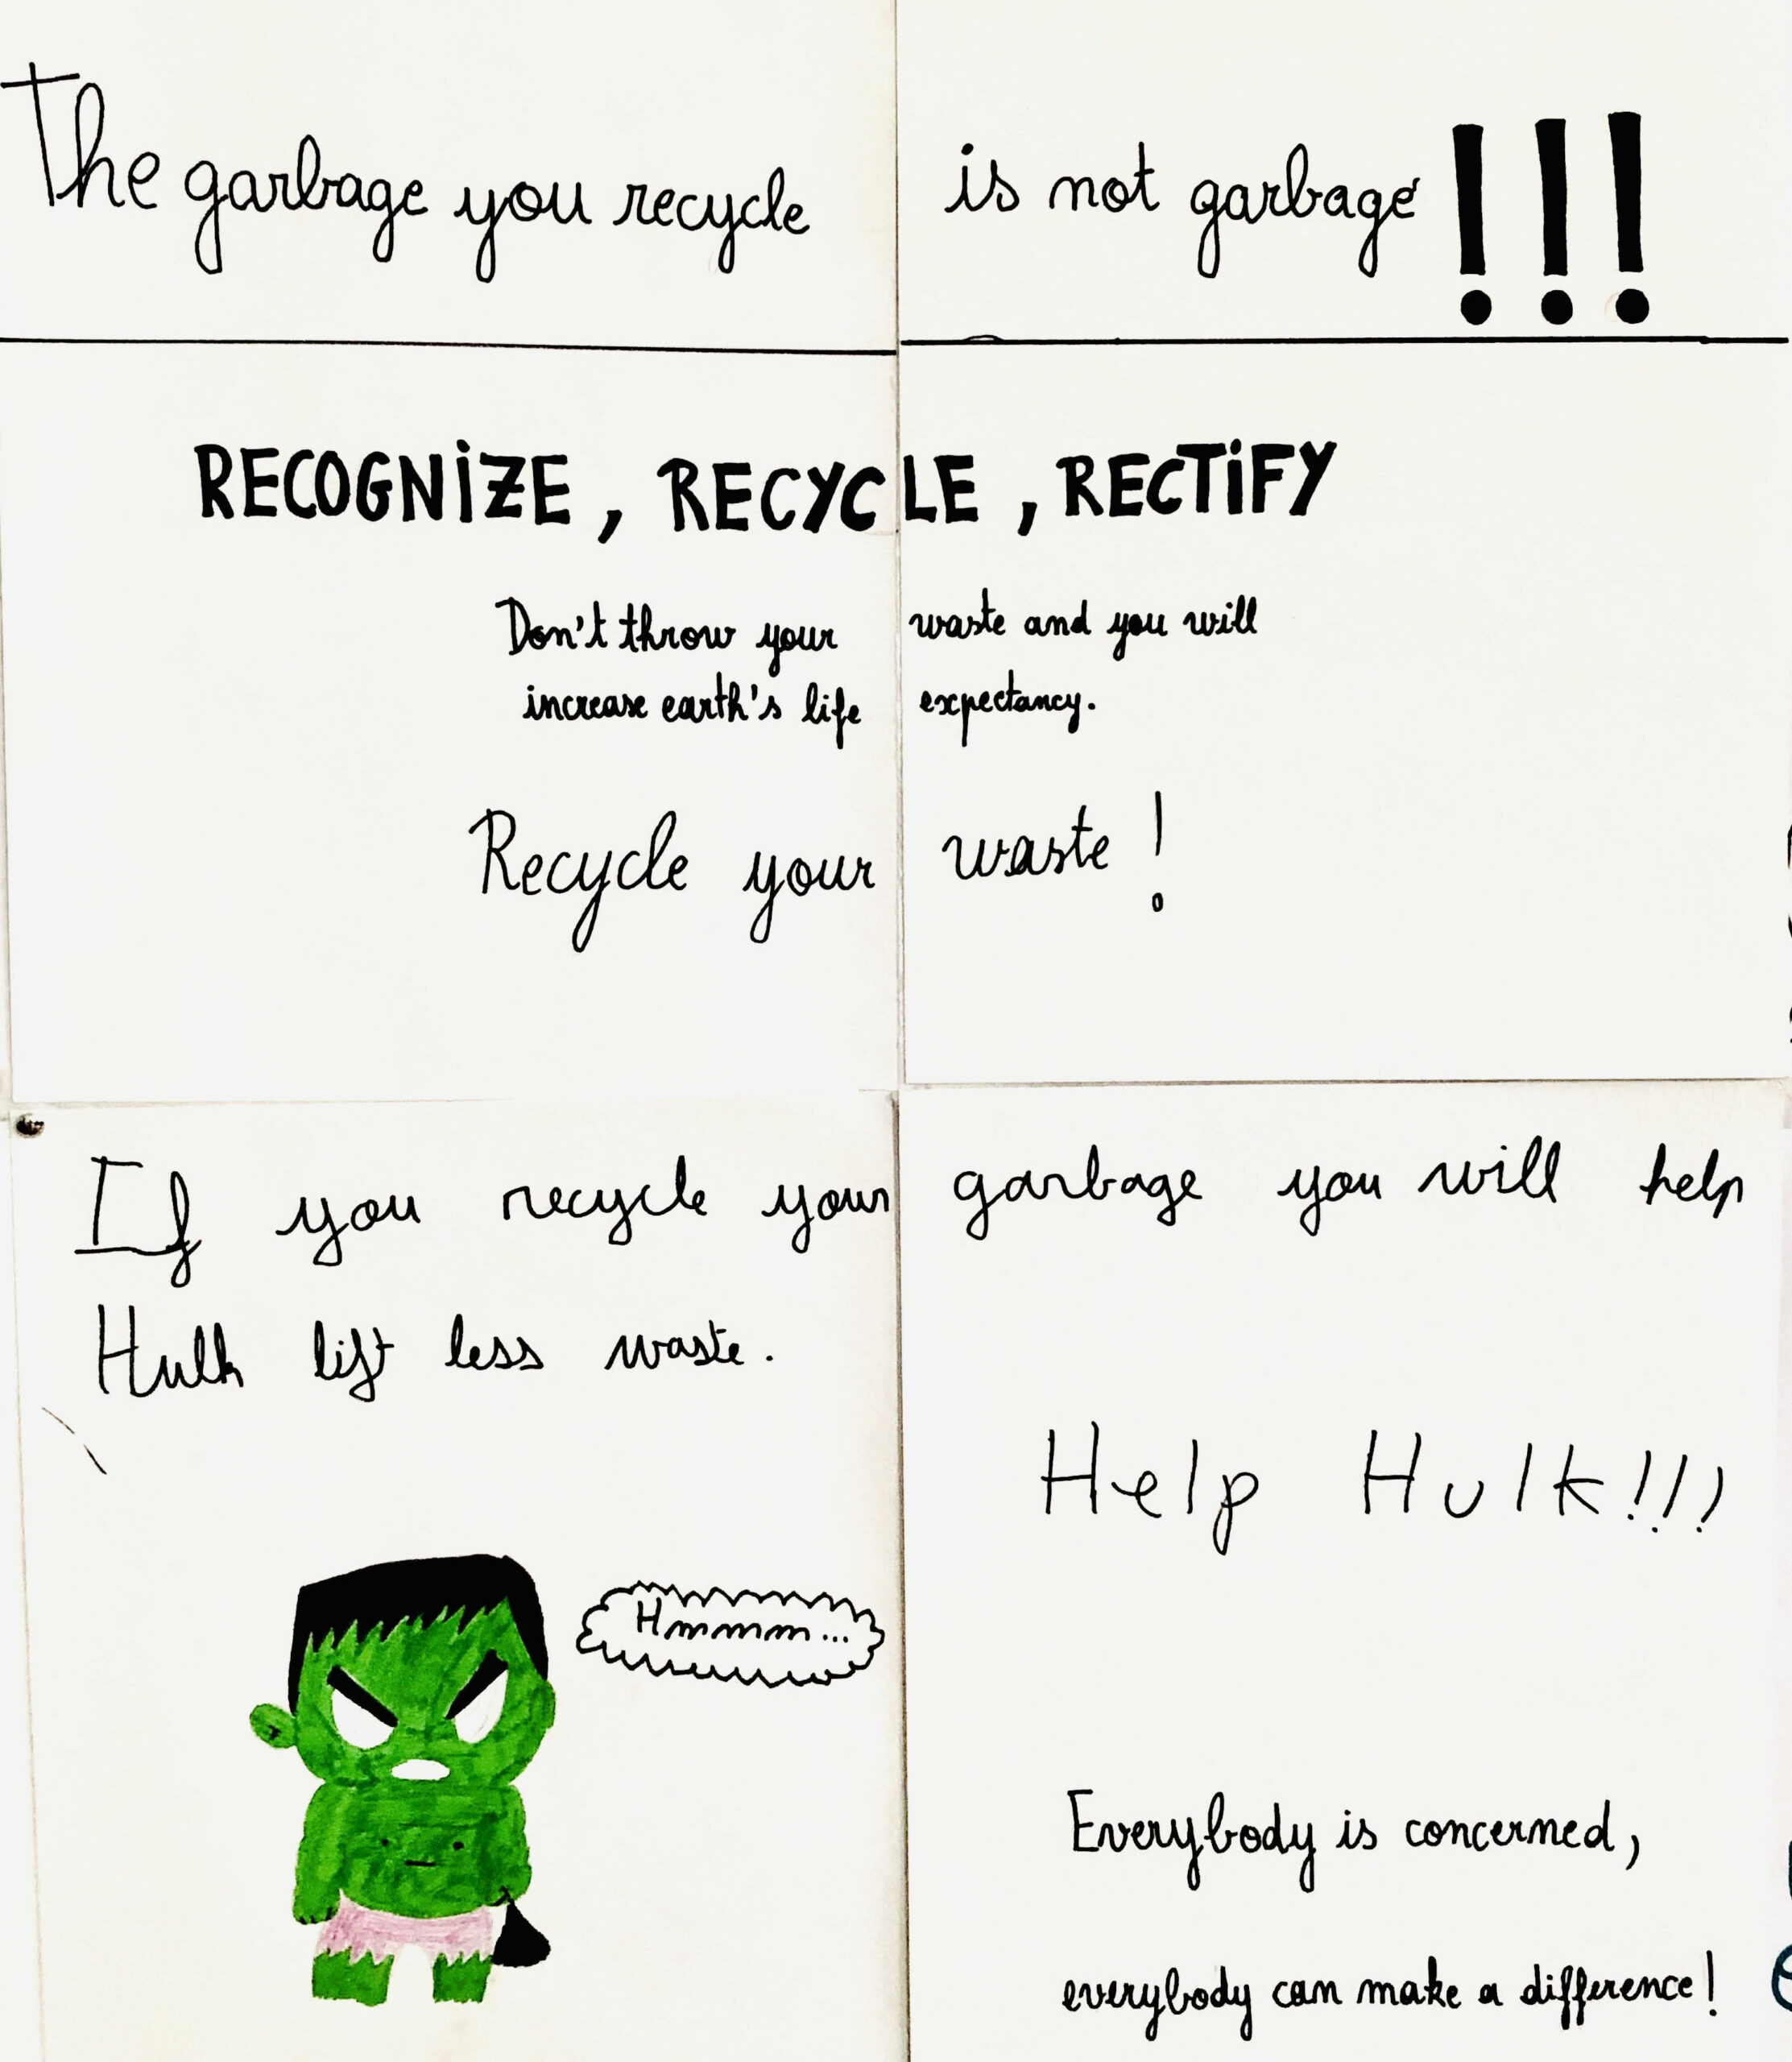 The garbage you recycle is not garbage!!!
RECOGNIZE, RECYCLE, RECTIFY
Don't throw your waste and you will
increase earth's life expectancy.
Recycle your waste!
If you recycle your garbage you will help
Hulk lift less waste.
Help Hulk!!!
Hmmm...
Everybody is concerned,
everybody can make a difference!